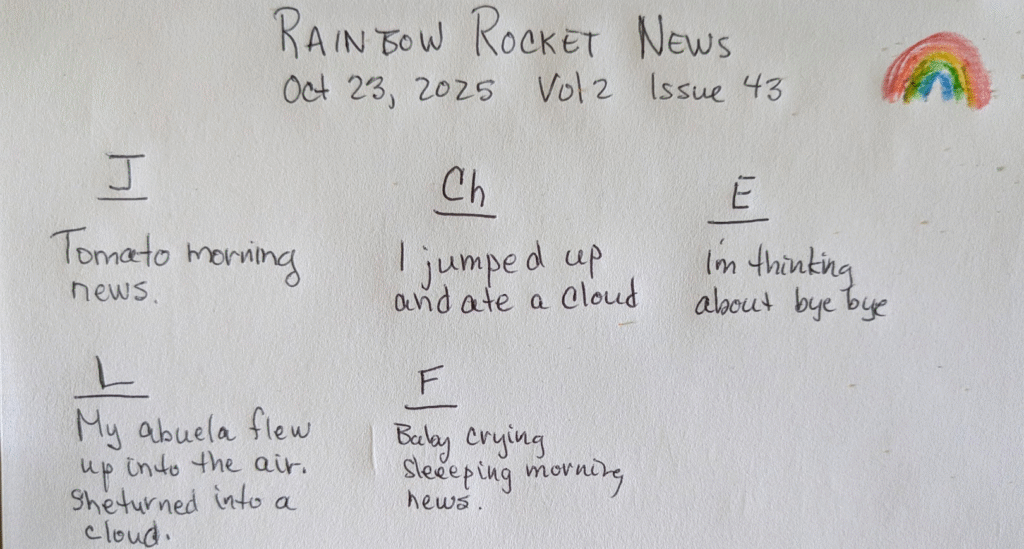 RAINBOW ROCKET NEWS
Oct 23, 2025 Vol 2 Issue 43
J
Tomato morning
news.
Ch
I jumped up
and ate a cloud
E
I'm thinking
about bye bye
L
My abuela flew
up into the air.
She turned into a
cloud.
F
Baby crying
sleeeping morning
news.